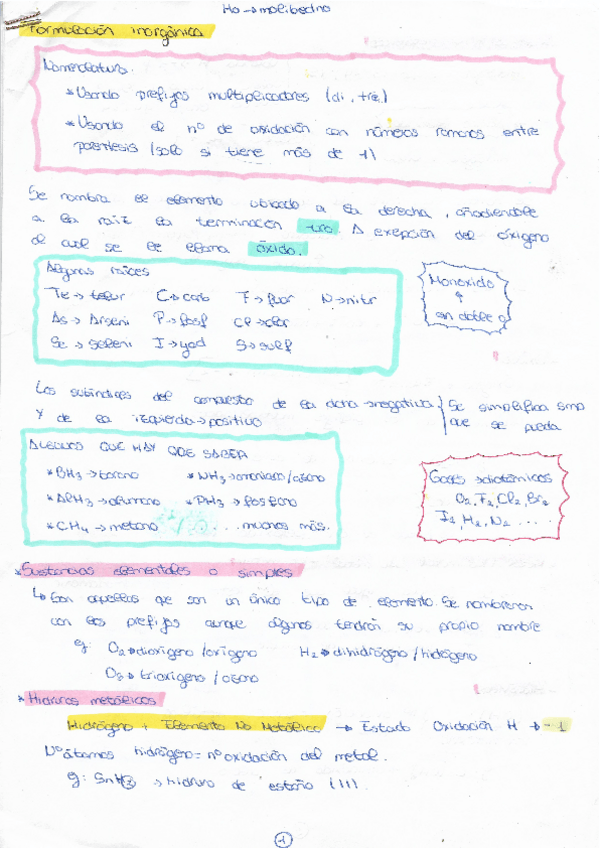 Mo → molibedno
Formulación inorgánica
Nomenclatura.
* Usando prefijos multiplicadores (di, tri..)
* Usando el nº de oxidación con números romanos entre
paréntesis (solo si tiene más de 1)
Se nombra el elemento ubicado a la derecha, añadiendole
a la raiz la terminación uro. A exepción del óxigeno
al cual se le llama óxido.
Algunas raíces
Te → telur C → carb F → fluor N → nitr
As → Arseni P → fosf Cl → clor
Se → seleni I → yod S → sulf
Monoxido
sin doble o
Los subindices del compuesto de la dcha → negativa
y de la izquierda → positivo
Se simplifica smp
que se pueda
ALGUNOS QUE HAY QUE SABER
* BH3 → borano * NH3 → amoniaco/azano
* AlH3 → alumano * PH3 → fosfano
* CH4 → metano ... muchos más.
Gases → diatómicos
O2, F2, Cl2, Br2
I2, H2, N2 ....
* Sustancias elementales o simples
↳ Son aquellas que son un único tipo de elemento. Se nombraran
con los prefijos aunque algunos tendrán su propio nombre
eg: O2 → dioxígeno/oxígeno H2 → dihidrógeno/hidrógeno
O3 → trioxigeno/ozono
* Hidruros metálicos
Hidrógeno + Elemento No Metálico → Estado Oxidación H → -1
Nº átomos hidrógeno = nº oxidación del metal.
eg: SnH3 → hidruro de estaño (III).
1